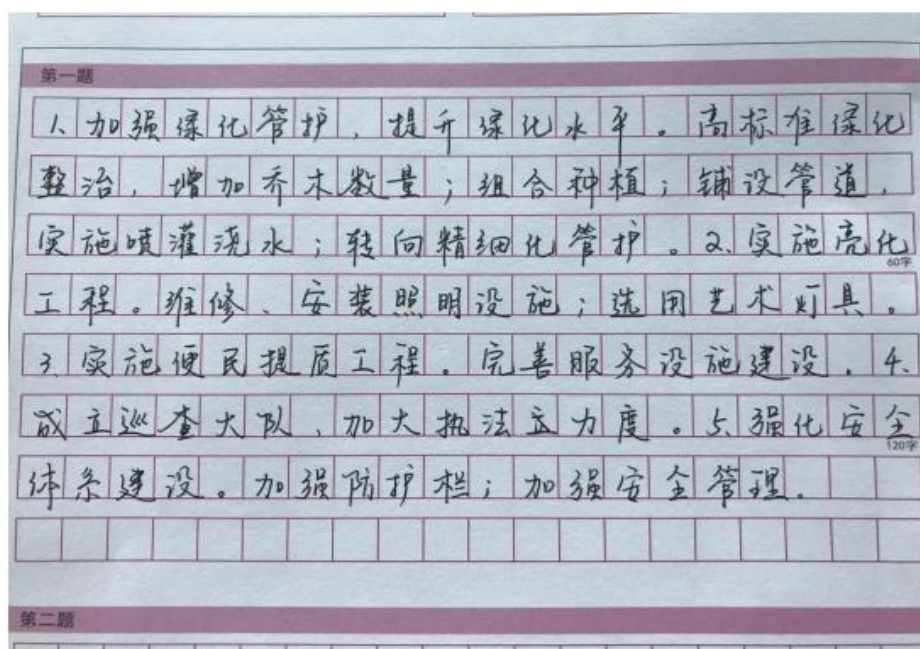 第一题
1、加强绿化管护，提升绿化水平。高标准绿化
整治，增加乔木数量；组合种植；铺设管道，
实施喷灌浇水；转向精细化管护。2、实施亮化
60字
工程。维修、安装照明设施；选用艺术灯具。
3、实施便民提质工程。完善服务设施建设。4、
成立巡查大队，加大执法立力度。5、强化安全
120字
体系建设。加强防护栏；加强安全管理。
第二题